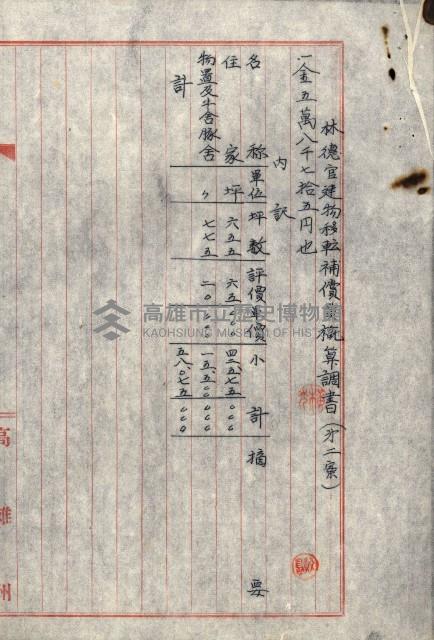 林德官建物移転補償費概算調書（第二案）
一金五萬八千七拾五円也
内訳
名称 單位 坪數 評價單價 小計 摘要
住家 坪 六五五 六五〇〇 四二、五七五〇〇〇
物置及牛舎豚舎 〃 七七五 二〇〇〇 一五、五〇〇〇〇〇
計 五八、〇七五〇〇〇
高雄州
高雄市立歷史博物館
KAOHSIUNG MUSEUM OF HISTORY